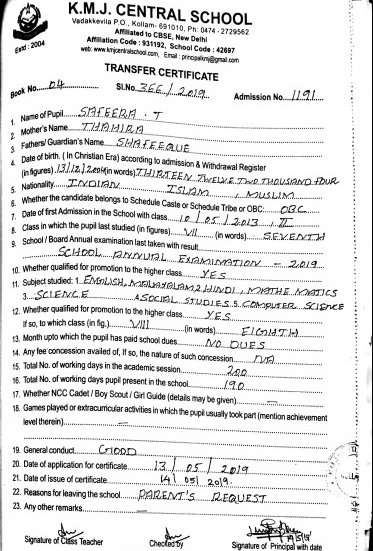 K.M.J. CENTRAL SCHOOL
Vadakkevila P.O., Kollam- 691010, Ph: 0474 - 2729562
Affiliated to CBSE, New Delhi
Affiliation Code : 931192, School Code : 42697
web: www.kmjcentralschool.com, Email : principalkmj@gmail.com
Estd : 2004
TRANSFER CERTIFICATE
Book No. 04 Sl.No. 366/2019 Admission No 1191
1. Name of Pupil SAFEERA . T
2. Mother's Name THAHIRA
3. Fathers/ Guardian's Name SHAFEEQUE
4. Date of birth. ( In Christian Era) according to admission & Withdrawal Register
(in figures) 13/12/2004 (in words) THIRTEEN TWELVE TWO THOUSAND FOUR
5. Nationality INDIAN ISLAM, MUSLIM
6. Whether the candidate belongs to Schedule Caste or Schedule Tribe or OBC: OBC
7. Date of first Admission in the School with class 10/05/2013, II
8. Class in which the pupil last studied (in figures) VII (in words) SEVENTH
9. School / Board Annual examination last taken with result
SCHOOL ANNUAL EXAMINATION - 2019
10. Whether qualified for promotion to the higher class YES
11. Subject studied: 1. ENGLISH, MALAYALAM 2. HINDI, MATHEMATICS
3. SCIENCE 4. SOCIAL STUDIES 5. COMPUTER SCIENCE
12. Whether qualified for promotion to the higher class YES
If so, to which class (in fig.) VIII (in words) EIGHTH
13. Month upto which the pupil has paid school dues NO DUES
14. Any fee concession availed of, If so, the nature of such concession NA
15. Total No. of working days in the academic session 200
16. Total No. of working days pupil present in the school 190
17. Whether NCC Cadet / Boy Scout / Girl Guide (details may be given) —
18. Games played or extracurricular activities in which the pupil usually took part (mention achievement
level therein) —
19. General conduct GOOD
20. Date of application for certificate 13/05/2019
21. Date of issue of certificate 14/05/2019
22. Reasons for leaving the school PARENT'S REQUEST
23. Any other remarks —
Signature of Class Teacher Checked by Signature of Principal with date